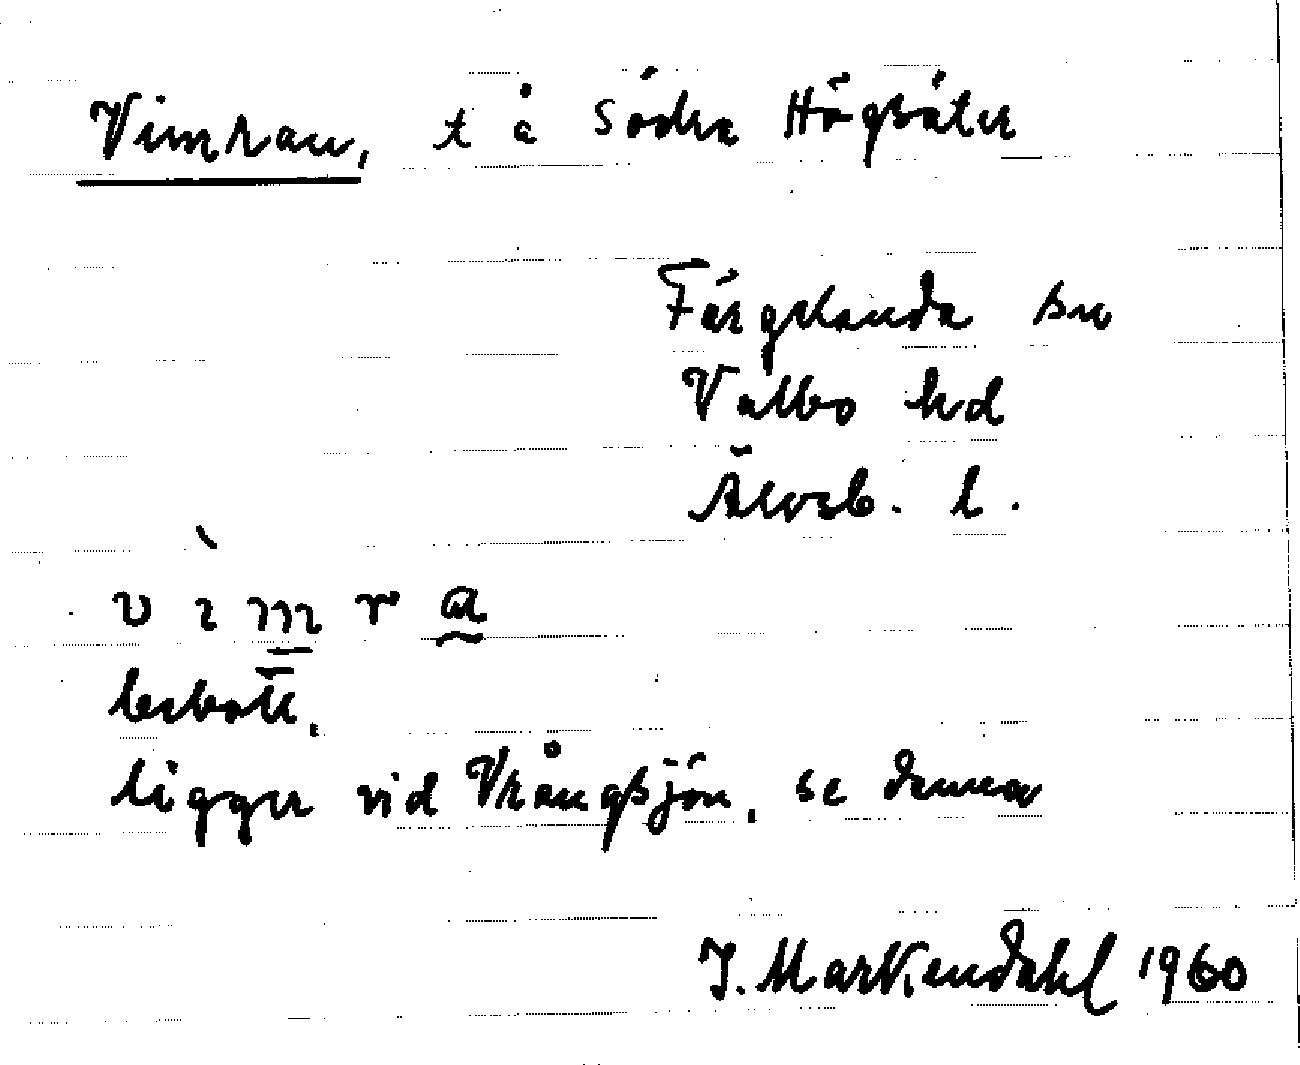 Vimran, t å Södra Högsäter
Färgelanda sn
Valbo hd
Älvsb. l.
v ì m r a
lerbott.
ligger vid Vrångsjön, se denna
J. Markendahl 1960